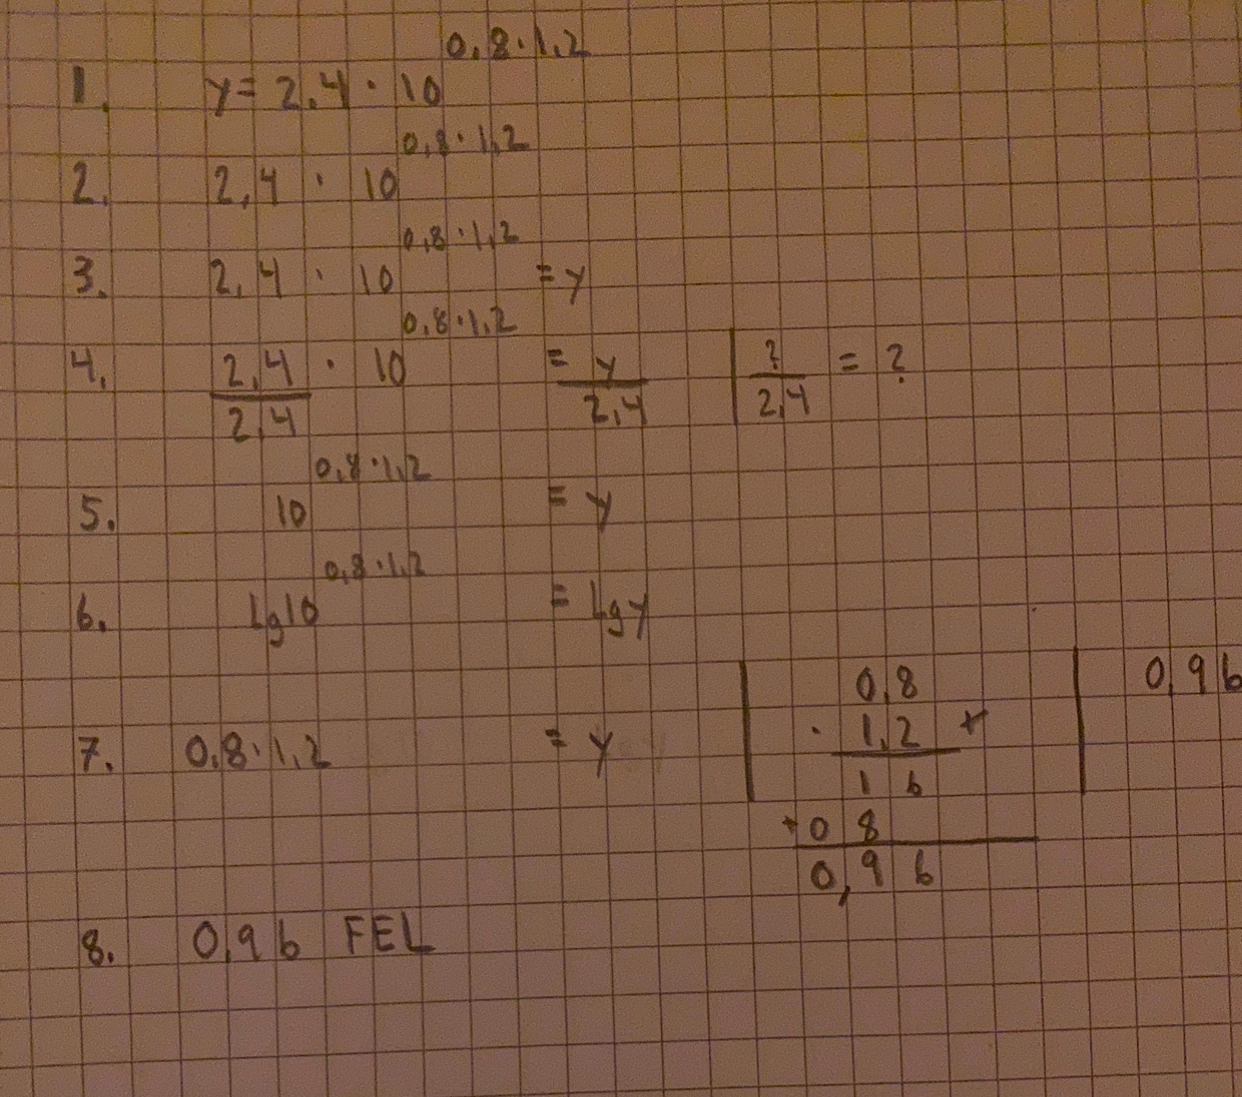 1. y = 2,4 · 10^0,8·1,2
2. 2,4 · 10^0,8·1,2
3. 2,4 · 10^0,8·1,2 = y
4. 2,4/2,4 · 10^0,8·1,2 = y/2,4 | ?/2,4 = ?
5. 10^0,8·1,2 = y
6. Lg10^0,8·1,2 = Lgy
7. 0,8·1,2 = y
0,8
· 1,2 +
16
+08
0,96
0,96
8. 0,96 FEL